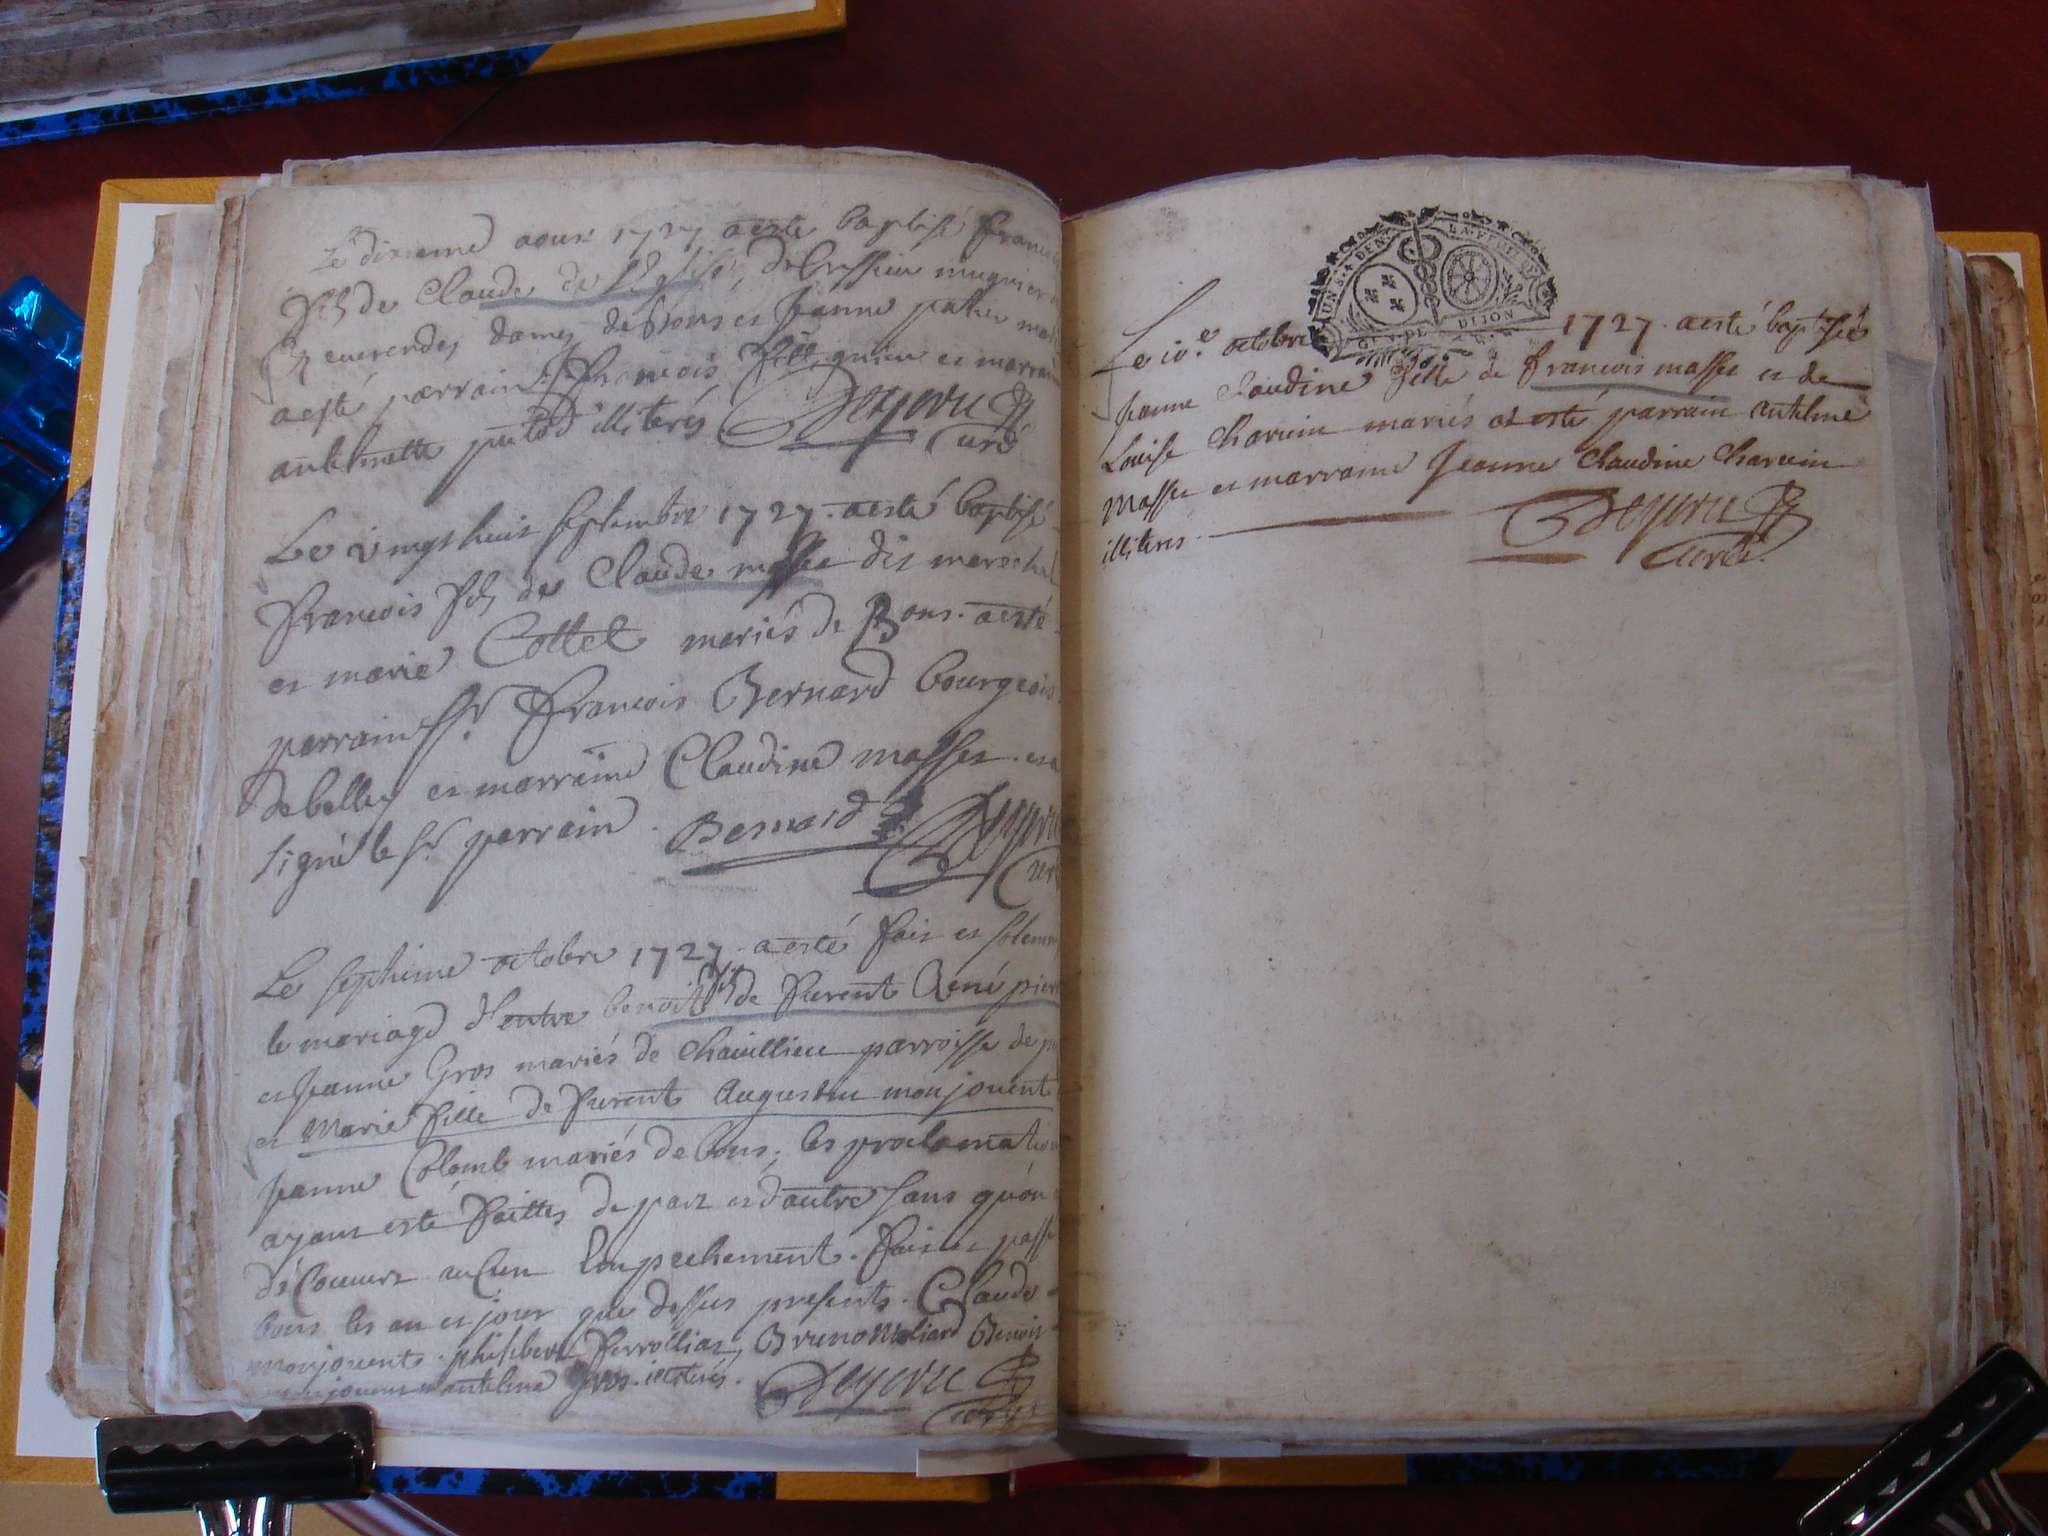 Le dixieme aoust 1727 a esté baptisé
fils de Claude de mugnier
Reverendes dames de Bons et Jeanne
a esté parrain François et marraine
anthelmette illiterés Deyeru
Curé
Le vingt huit septembre 1727 a esté baptisé
François fils de Claude masse dit marechal
et marie Cottet mariés de Bons. a esté
parrain Sr. François Bernard bourgeois
de belley et marraine Claudine masse
signé le Sr parrain. Bernard Deyeru
Curé
Le septieme octobre 1727. a esté fait et
le mariage d'entre benoit fils de furent René
et Jeanne Gros mariés de Chavillieu parroisse de
et Marie fille de furent Augustin monjouent
Jeanne Colomb mariés de bons; les
ayant esté faittes de part et d'autre sans qu'on
découvert aucun Empechement. fait et passé
bons les an et jour que dessus presents. Claude
monjouent. philibert Perrollian, Bruno Moliard Benoit
monjouent anthelme gros illiterés. Deyeru
Curé
UN S. 4 DEN. LA FEUILLE
GEN. DE DIJON
Le 10.e octobre 1727. a esté baptisée
Jeanne Claudine fille de François masse et de
Louise Charvin mariés a esté parrain Antelme
Masse et marraine Jeanne Claudine Charvin
illiteres. Deyeru
Curé.